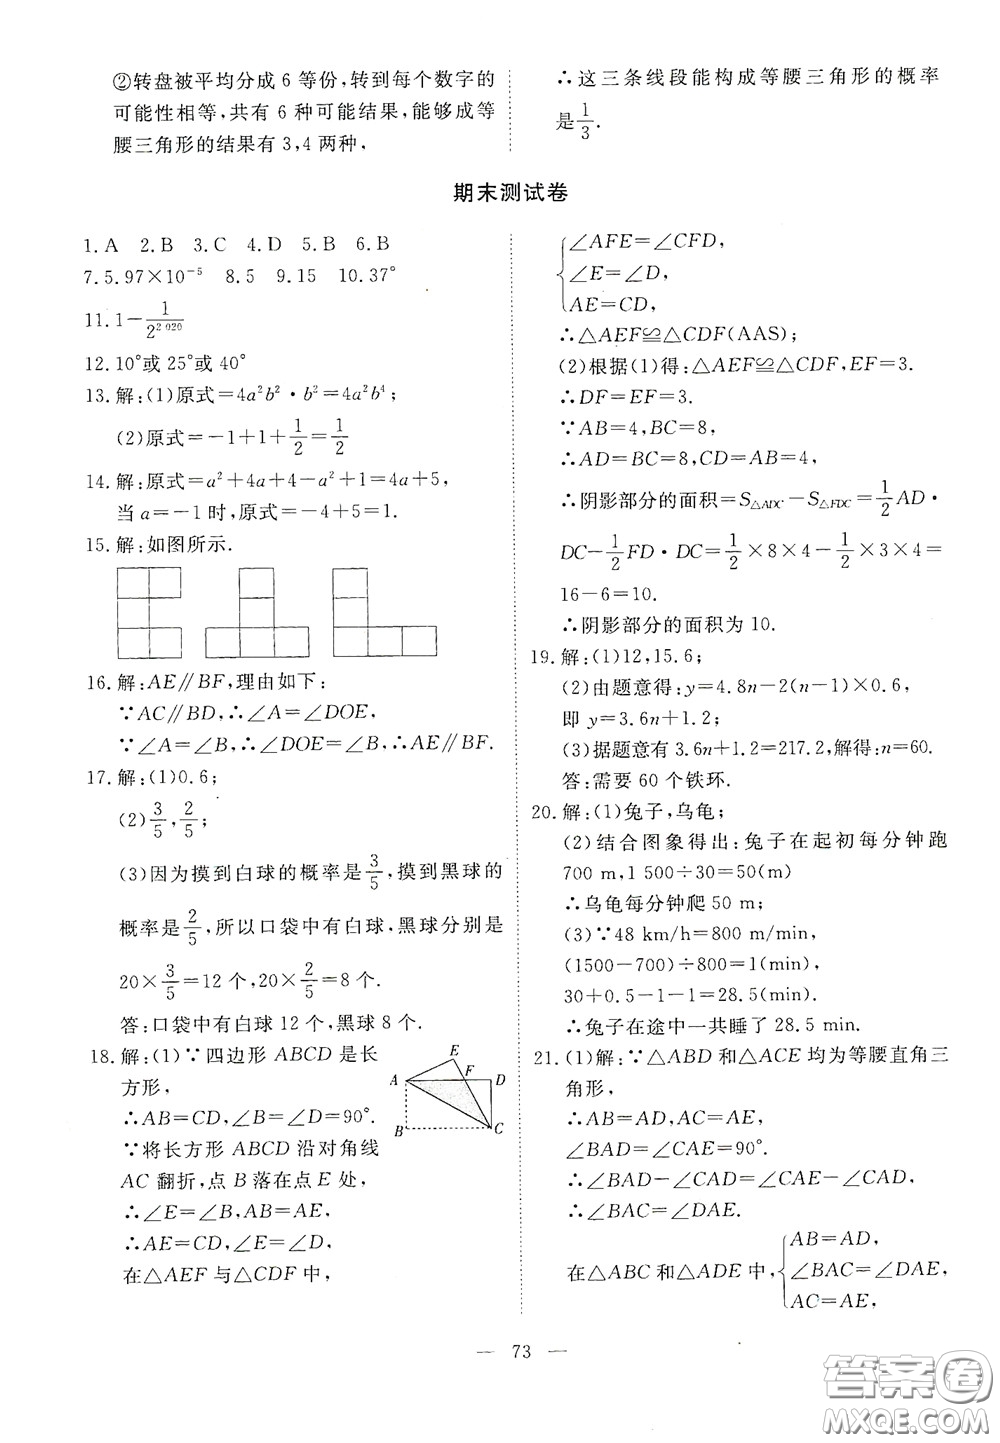 ②转盘被平均分成 6 等份,转到每个数字的
可能性相等,共有 6 种可能结果,能够成等
腰三角形的结果有 3,4 两种,
∴这三条线段能构成等腰三角形的概率
是1/3.
期末测试卷
1. A 2. B 3. C 4. D 5. B 6. B
7. 5.97×10⁻⁵ 8. 5 9. 15 10. 37°
11. 1−1/2^{2 020}
12. 10°或 25°或 40°
13. 解:(1)原式=4a²b²·b²=4a²b⁴;
(2)原式=−1+1+1/2=1/2
14. 解:原式=a²+4a+4−a²+1=4a+5,
当 a=−1 时,原式=−4+5=1.
15. 解:如图所示.
16. 解:AE∥BF,理由如下:
∵AC∥BD,∴∠A=∠DOE,
∵∠A=∠B,∴∠DOE=∠B,∴AE∥BF.
17. 解:(1)0.6;
(2)3/5,2/5;
(3)因为摸到白球的概率是3/5,摸到黑球的
概率是2/5,所以口袋中有白球,黑球分别是
20×3/5=12 个,20×2/5=8 个.
答:口袋中有白球 12 个,黑球 8 个.
18. 解:(1)∵四边形 ABCD 是长
方形,
∴AB=CD,∠B=∠D=90°.
∵将长方形 ABCD 沿对角线
AC 翻折,点 B 落在点 E 处,
∴∠E=∠B,AB=AE,
∴AE=CD,∠E=∠D,
在△AEF 与△CDF 中,
E
F
A
D
B
C
∠AFE=∠CFD,
∠E=∠D,
AE=CD,
∴△AEF≌△CDF(AAS);
(2)根据(1)得:△AEF≌△CDF,EF=3.
∴DF=EF=3.
∵AB=4,BC=8,
∴AD=BC=8,CD=AB=4,
∴阴影部分的面积=S△ADC−S△FDC=1/2AD·
DC−1/2FD·DC=1/2×8×4−1/2×3×4=
16−6=10.
∴阴影部分的面积为 10.
19. 解:(1)12,15.6;
(2)由题意得:y=4.8n−2(n−1)×0.6,
即 y=3.6n+1.2;
(3)据题意有 3.6n+1.2=217.2,解得:n=60.
答:需要 60 个铁环.
20. 解:(1)兔子,乌龟;
(2)结合图象得出:兔子在起初每分钟跑
700 m,1 500÷30=50(m)
∴乌龟每分钟爬 50 m;
(3)∵48 km/h=800 m/min,
(1500−700)÷800=1(min),
30+0.5−1−1=28.5(min).
∴兔子在途中一共睡了 28.5 min.
21. (1)解:∵△ABD 和△ACE 均为等腰直角三
角形,
∴AB=AD,AC=AE,
∠BAD=∠CAE=90°.
∴∠BAD−∠CAD=∠CAE−∠CAD,
∴∠BAC=∠DAE.
AB=AD,
在△ABC 和△ADE 中,∠BAC=∠DAE,
AC=AE,
— 73 —
答案卷
MXQE.COM